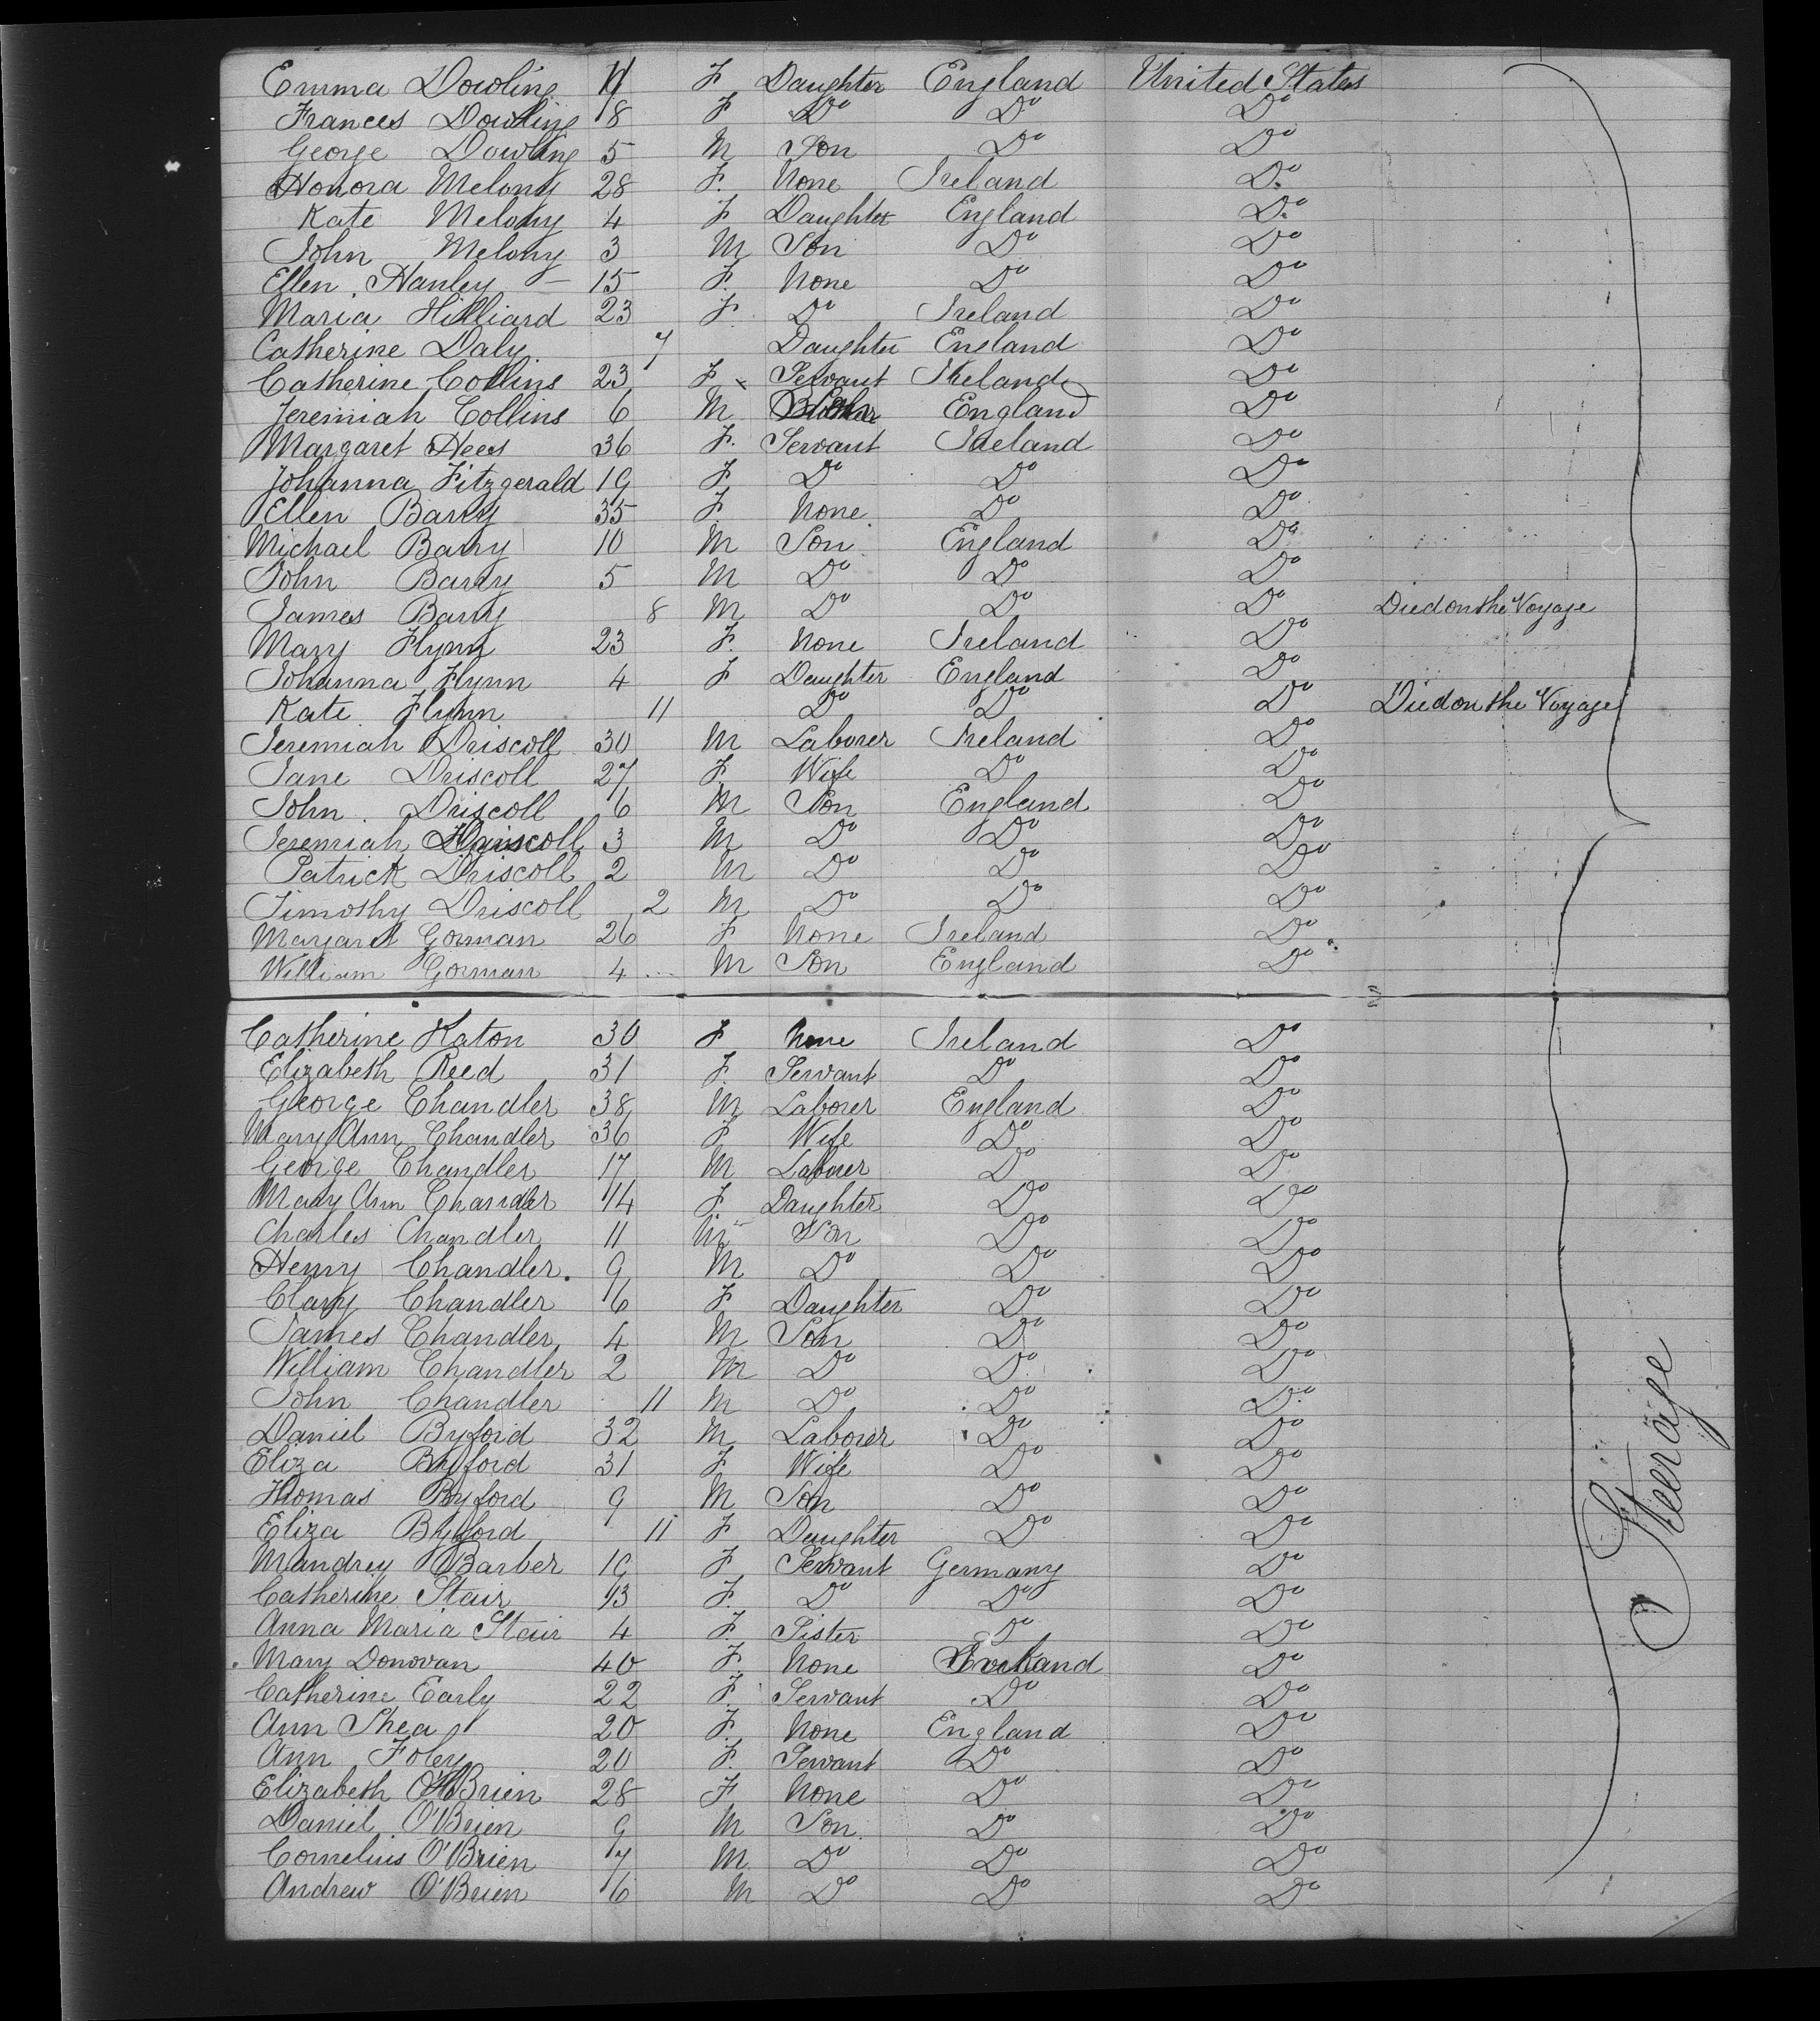 Emma Dowling 11 F Daughter England United States
Frances Dowling 8 F Do Do Do
George Dowling 5 M Son Do Do
Honora Melony 28 F. None Ireland Do
Kate Melony 4 F Daughter England Do
John Melony 3 M Son Do Do
Ellen Hanley — 15 F. None Do Do
Maria Hilliard 23 F Do Ireland Do
Catherine Daly 7 Daughter England Do
Catherine Collins 23 F Servant Ireland Do
Jeremiah Collins 6 M England Do
Margaret Hees 36 F. Servant Ireland Do
Johanna Fitzgerald 19 F Do Do Do
Ellen Barry 35 F. None Do Do
Michael Barry 10 M Son England Do
John Barry 5 M Do Do Do
James Barry 8 M Do Do Do Died on the Voyage
Mary Flynn 23 F. None Ireland Do
Johanna Flynn 4 F Daughter England Do
Kate Flynn 11 Do Do Do Died on the Voyage
Jeremiah Driscoll 30 M Laborer Ireland Do
Jane Driscoll 27 F. Wife Do Do
John Driscoll 6 M Son England Do
Jeremiah Driscoll 3 M Do Do Do
Patrick Driscoll 2 M Do Do Do
Timothy Driscoll 2 M Do Do Do
Margaret Gorman 26 F None Ireland Do
William Gorman 4 M Son England Do
Catherine Katon 30 F None Ireland Do
Elizabeth Reed 31 F. Servant Do Do
George Chandler 38 M Laborer England Do
Mary Ann Chandler 36 F Wife Do Do
George Chandler 17 M Laborer Do Do
Mary Ann Chandler 14 F. Daughter Do Do
Charles Chandler 11 M Son Do Do
Henry Chandler. 9 M Do Do Do
Clary Chandler 6 F Daughter Do Do
James Chandler 4 M Son Do Do
William Chandler 2 M Do Do Do
John Chandler 11 M Do Do Do
Daniel Byford 32 M Laborer Do Do
Eliza Byford 31 F Wife Do Do
Thomas Byford 9 M Son Do Do
Eliza Byford 11 F Daughter Do Do
Mandrey Barber 19 F Servant Germany Do
Catherine Stair 13 F. Do Do Do
Anna Maria Stair 4 F. Sister Do Do
Mary Donovan 40 F. None Do
Catherine Early 22 F. Servant Do Do
Ann Shea 20 F. None England Do
Ann Foley 20 F. Servant Do Do
Elizabeth O'Brien 28 F None Do Do
Daniel O'Brien 9 M Son Do Do
Cornelius O'Brien 7 M Do Do Do
Andrew O'Brien 6 M Do Do Do
Steerage